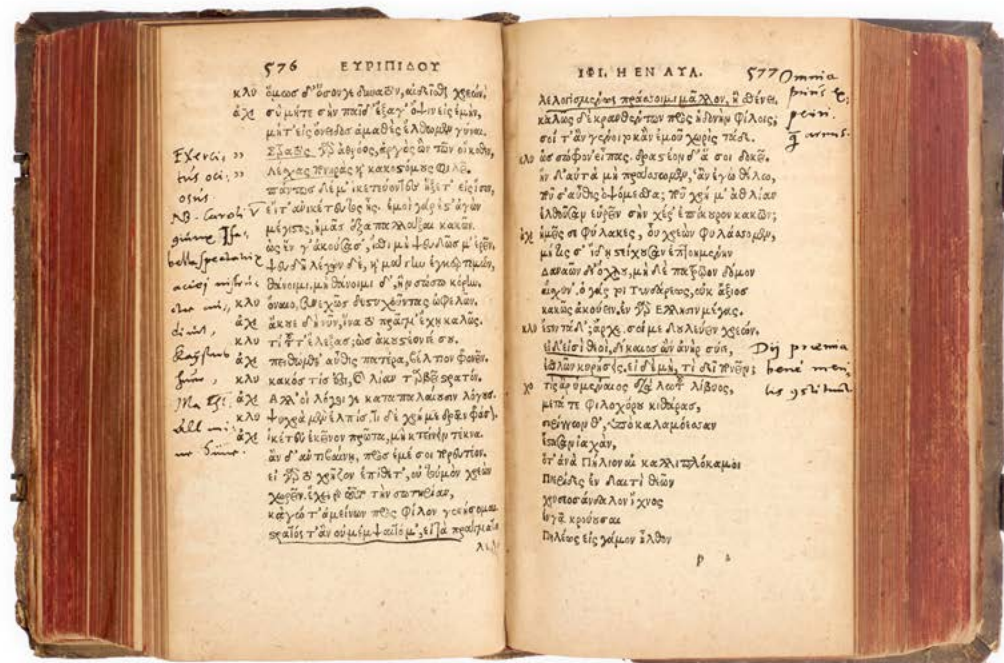 576 ΕΥΡΙΠΙΔΟΥ
κλυ ὅμως δ' ὅσον γε δυνατὸν, αἰδεῖσθαι χρεών.
ἀχι σὺ μήτε σὴν παῖδ' ἔξαγ' ὄψιν εἰς ἐμὴν,
μήτ' εἰς ὄνειδος ἀμαθὲς ἔλθωμεν γύναι.
Στρατὸς γὰρ ἀθρόος, ἀργὸς ὢν τῶν οἴκοθεν,
λέσχας πονηρὰς καὶ κακοστόμους φιλεῖ.
πάντως δέ μ' ἱκετεύοντες ἥξετ' εἰς ἴσον,
εἴτ' ἀνικετεύτως ἦς. ἐμοὶ γάρ ἐστ' ἀγὼν
μέγιστος, ἡμᾶς ἐξαπαλλάξαι κακῶν.
ὡς ἕν γ' ἀκούσασ', ἴσθι μὴ ψευδῶς μ' ἐρεῖν,
ψευδῆ λέγων δὲ, καὶ μάτην ἐγκερτομῶν,
θάνοιμι. μὴ θάνοιμι δ', ἢν σώσω κόρην.
κλυ ὄναιο, συνεχῶς δυστυχοῦντας ὠφελῶν.
ἀχι ἄκουε δὴ νῦν, ἵνα τὸ πρᾶγμ' ἔχῃ καλῶς.
κλυ τί τοῦτ' ἔλεξας; ὡς ἀκουστέον γέ σου.
ἀχι πειθώμεθ' αὖθις πατέρα, βέλτιον φρονεῖν.
κλυ κακός τίς ἐστι, καὶ λίαν ταρβεῖ στρατόν.
ἀχι Ἀλλ' οἱ λόγοι γε καταπαλαίουσιν λόγους.
κλυ ψυχρὰ μὲν ἐλπίς. τι δὲ χρή με δρᾶν φράσον.
ἀχι ἱκέτευ' ἐκεῖνον πρῶτα, μὴ κτείνειν τέκνα.
ἂν δ' ἀντιβαίνῃ, πρὸς ἐμέ σοι πορευτέον.
εἰ γὰρ τὸ χρῇζον ἐπίθετ', οὐ τοὐμὸν χρεὼν
χωρεῖν. ἔχει γὰρ τοῦτο τὴν σωτηρίαν,
κἀγώ τ' ἀμείνων πρὸς φίλον γενήσομαι
στρατός τ' ἂν οὐ μέμψαιτό μ', εἰ τὰ πράγματα
Exerci„
tus oci„
osus.
NB. Caroli V
577 ΙΦΙ. Η ΕΝ ΑΥΛ.
λελογισμένως πράσσοιμι μᾶλλον, ἢ σθένει.
καλῶς δὲ κρανθέντων πρὸς ἡδονὴν φίλοις,
σοί τ' ἂν γένοιτο κἂν ἐμοῦ χωρὶς τάδε.
κλυ ὡς σώφρον' εἶπας. δραστέον δ' ἅ σοι δοκεῖ.
ἢν δ' αὐτὰ μὴ πράσσωμεν, ἃν ἐγὼ θέλω,
ποῦ σ' αὖθις ὀψόμεσθα; ποῦ χρή μ' ἀθλίαν
ἐλθοῦσαν εὑρεῖν σὴν χέρ' ἐπίκουρον κακῶν;
ἀχι ἡμεῖς σε φύλακες, οὗ χρεὼν φυλάσσομεν,
μή τις σ' ἴδῃ στείχουσαν ἐπτοημένην
Δαναῶν δι' ὄχλου, μηδὲ πατρῷον δόμον
αἴσχυν'. ὁ γάρ τοι Τυνδάρεως, οὐκ ἄξιος
κακῶς ἀκούειν. ἐν γὰρ Ἕλλησιν μέγας.
κλυ ἔσται τάδ'; ἄρχε. σοί με δουλεύειν χρεών.
εἰ δ' εἰσὶ θεοὶ, δίκαιος ὢν ἀνὴρ σύ γε,
ἐσθλῶν κυρήσεις. εἰ δὲ μὴ, τί δεῖ πονεῖν;
χο τίς ἄρ' ὑμέναιος διὰ λωτοῦ λίβυος,
μετά τε φιλοχόρου κιθάρας,
συρίγγων θ', ὑπὸ καλαμόεσσαν
ἔστασαν ἰαχὰν,
ὅτ' ἀνὰ Πήλιον αἱ καλλιπλόκαμοι
Πιερίδες ἐν δαιτὶ θεῶν
χρυσεοσάνδαλον ἴχνος
ἐν γᾷ κρούουσαι
Πηλέως εἰς γάμον ἦλθον
Omnia
prius
Dij præmia